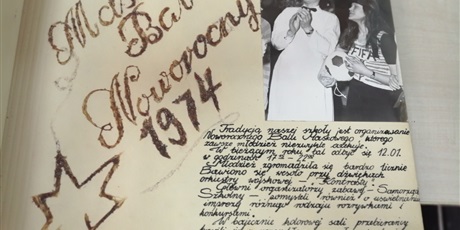 Bal
Noworoczny
1974
FIFA
Tradycją naszej szkoły jest organizowanie
Noworocznego Balu Maskowego, którego
zawsze młodzież niezwykle oczekuje.
W bieżącym roku bal odbył się 12.01.
w godzinach
Młodzież zgromadziła się bardzo licznie
Bawiono się wesoło przy dźwiękach
orkiestry wojskowej - "Kontrasty".
Główni organizatorzy zabawy - Samorząd
Szkolny - pomyśleli również o uświetnieniu
imprezy różnego rodzaju rozrywkami i
konkursami.
W bajecznie kolorowej sali przebierańcy